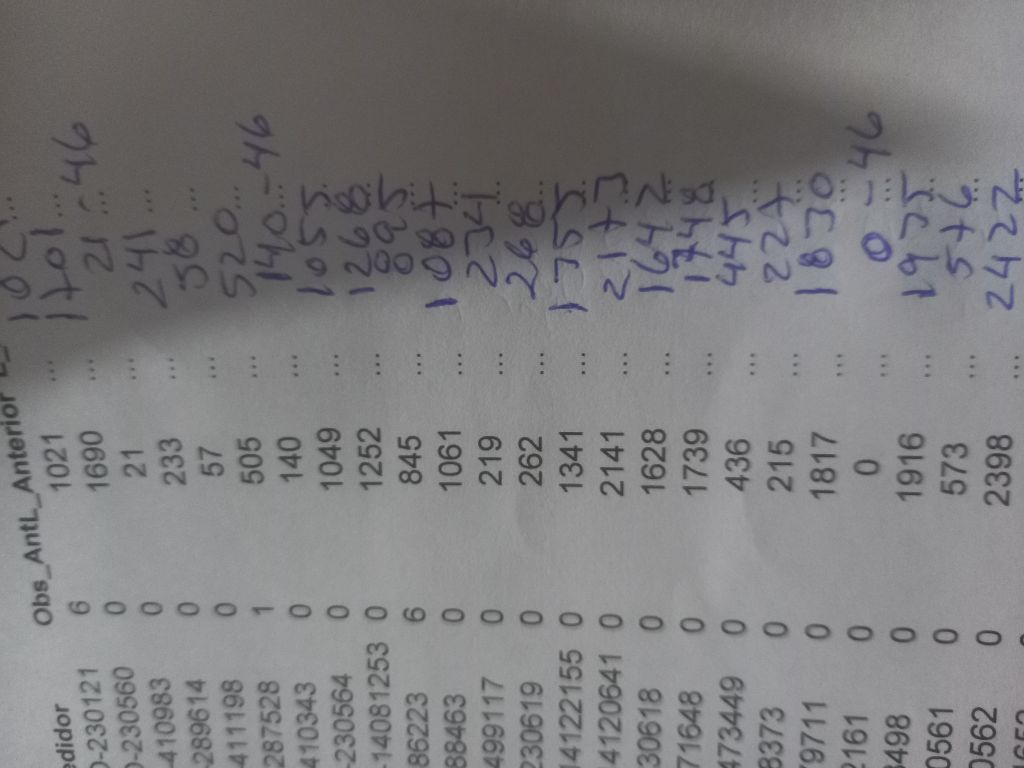 edidor Obs_Antl._Anterior L_
0-230121 6 1021 ... 1021 ...
0-230560 0 1690 ... 1701 ...
-410983 0 21 ... 21 ... - 46
-289614 0 233 ... 241 ...
-411198 0 57 ... 58 ...
287528 1 505 ... 520 ...
410343 0 140 ... 140 ... - 46
-230564 0 1049 ... 1055 ...
-14081253 0 1252 ... 1268 ...
86223 6 845 ... ...
88463 0 1061 ... 1087 ...
499117 0 219 ... 234 ...
230619 0 262 ... 268 ...
14122155 0 1341 ... 1355 ...
14120641 0 2141 ... 2173 ...
30618 0 1628 ... 1642 ...
71648 0 1739 ... 1748 ...
473449 0 436 ... 445 ...
8373 0 215 ... 227 ...
79711 0 1817 ... 1830 ...
2161 0 0 ... 0 ... - 46
3498 0 1916 ... 1935 ...
0561 0 573 ... 576 ...
0562 0 2398 ... 2422 ...